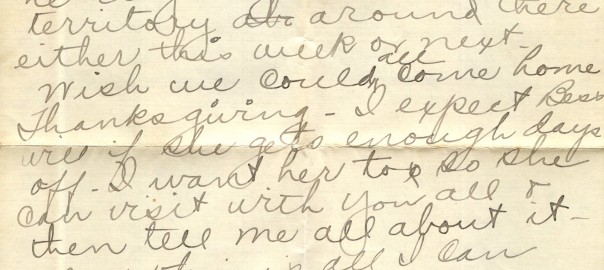 territory around there
either this week or next.
Wish we could all come home
Thanksgiving - I expect Bess
will if she gets enough days
off. I want her too so she
can visit with you all &
then tell me all about it -
all I can